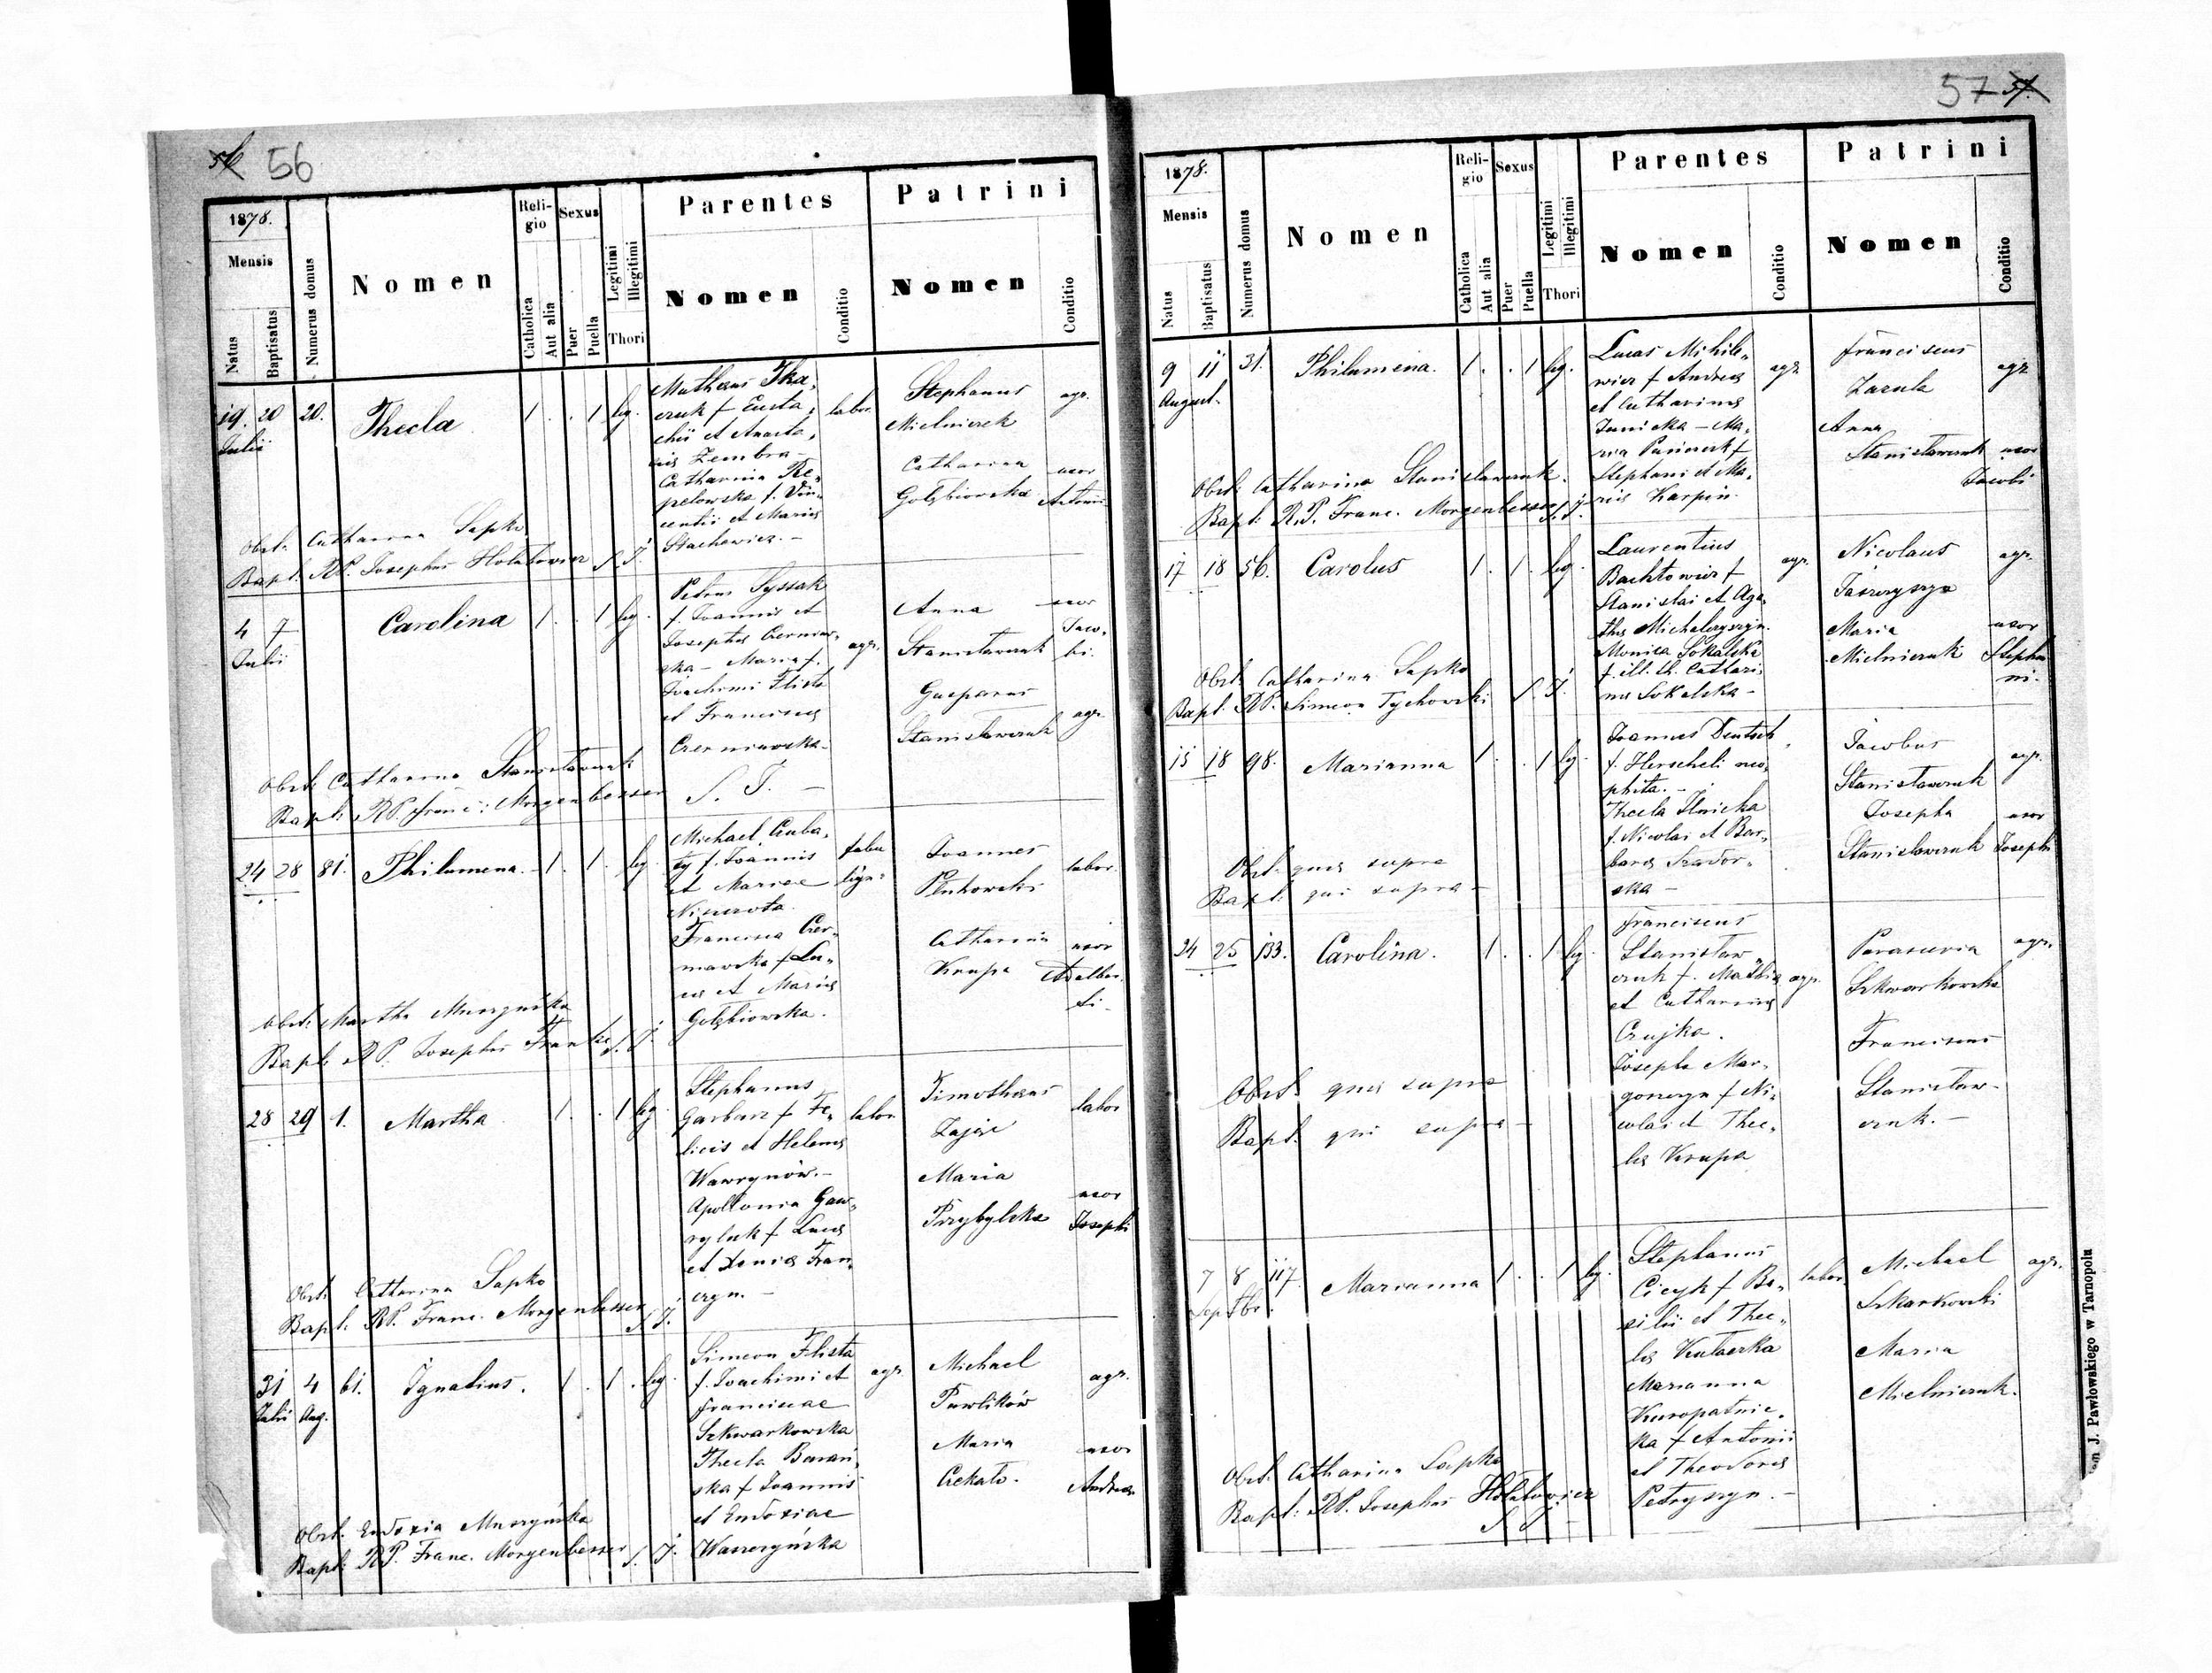 56
1878.
Mensis
Natus
Baptisatus
Numerus domus
Nomen
Religio
Catholica
Aut alia
Sexus
Puer
Puella
Legitimi
Illegitimi
Thori
Parentes
Nomen
Conditio
Patrini
Nomen
Conditio
19. 20 20. Thecla 1 . . 1 leg.
Julii
Matheus Tka,
czuk f. Eusta,
chii et Anasta,
siæ Zembra -
Catharina Re,
pelowska f. Vin,
centii et Mariæ
Stachewicz. -
labor.
Stephanus agr.
Mielniczek
Catharina uxor
Gołębiowska Antonii
Obst. Catharina Sapko
Bapt. RP. Josephus Hołubowicz S. J.
4 7 Carolina 1 . . 1 leg.
Julii
Petrus Tyssak
f. Joannis et
Josephæ Czerniaw-
ska - Maria f.
Joachimi Flista
et Franciscæ
Czerniawska -
agr.
Anna uxor
Stanisławczuk Jaco,
bi.
Gasparus
Stanisławczuk agr.
Obst. Catharina Stanisławczuk
Bapt. RP. Franc: Morgenbesser S. J. -
24 28 81. Philumena. 1 . 1 . leg.
Michael
ty f. Joannis
et Mariæ
Francisca Czer-
niawska f. Lu,
cæ et Mariæ
Gołębiowska.
faber
lign:
Joannes
labor.
Catharina uxor
Krupa Adalber,
ti.
Obst. Martha Muszyńska
Bapt. RP. Josephus S. J.
28 29 1. Martha 1 . . 1 leg.
Stephanus
Garbarz f. Fe,
licis et Helenæ
Wawrynów. -
Apollonia Gaw,
ryluk f. Lucæ
et Xeniæ Fran,
czyn. -
labor
Timotheus
Zając
labor
Maria uxor
Przybylska Josephi
Obst. Catharina Sapko
Bapt. RP. Franc. Morgenbesser S. J.
31 4 61. Ignatius. 1 . 1 . leg.
Julii Aug.
Simeon Flista
f. Joachimi et
Franciscae
Szkwarkowska
Thecla Barań,
ska f. Joannis
et Eudoxiae
Waszczyńska
agr.
Michael
Pawlików agr.
Maria uxor
Ciekało. Andreæ
Obst. Eudoxia Muszyńska
Bapt. RP. Franc. Morgenbesser S. J.
57
1878.
Mensis
Natus
Baptisatus
Numerus domus
Nomen
Religio
Catholica
Aut alia
Sexus
Puer
Puella
Legitimi
Illegitimi
Thori
Parentes
Nomen
Conditio
Patrini
Nomen
Conditio
9 11 31. Philumena. 1. . 1 leg.
August.
Lucas Mihile,
wicz f. Andreæ
et Catharinæ
Janicka - Ma,
ria f.
Stephani et Ma,
riæ Karpin.
agr.
Franciscus agr.
Zazula
Anna
Stanisławczuk uxor
Jacobi
Obst. Catharina Stanisławczuk.
Bapt. R.P. Franc. Morgenbesser S. J.
17 18 56. Carolus 1 . 1 . leg.
Laurentius
Bachtowicz f.
Stanislai et Aga,
thæ Michalczyszyn.
Monica Sokalska
f. ill. th. Cathari,
næ Sokalska -
agr.
Nicolaus agr.
Maria uxor
Mielniczuk Stepha,
ni.
Obst. Catharina Sapko
Bapt. RP. Simeon Tychowski S. J.
15 18 98. Marianna 1 . . 1 leg.
Joannes Deutsch
f. Herscheli neo,
phita. -
Thecla Ilnicka
f. Nicolai et Bar,
baræ
ska -
Jacobus
Stanisławczuk agr.
Josepha uxor
Stanisławczuk Josephi
Obst. quæ supra
Bapt. qui supra -
24 25 133. Carolina. 1. . 1 leg.
Franciscus
Stanisław,
czuk f. Mathiæ
et Catharinæ
Czujka.
Josepha Mar,
gonezyn f. Ni,
colai et Thec,
læ Krupa
agr.
Parascevia agr.
Szkwarkowska
Franciscus
Stanisław-
czuk. -
Obst. quæ supra
Bapt. qui supra -
7 8 117. Marianna 1 . . 1 leg.
Septbr.
Stephanus
Cicyk f. Ba,
silii et Thec,
læ
Marianna
Kuropatnic,
ka f. Antonii
et Theodoræ
Petryszyn. -
labor
Michael agr.
Szkarkowski
Maria
Mielniczuk.
Obst. Catharina Sapko
Bapt: RP. Josephus Hołubowicz
S. J. -
J. Pawłowskiego w Tarnopolu